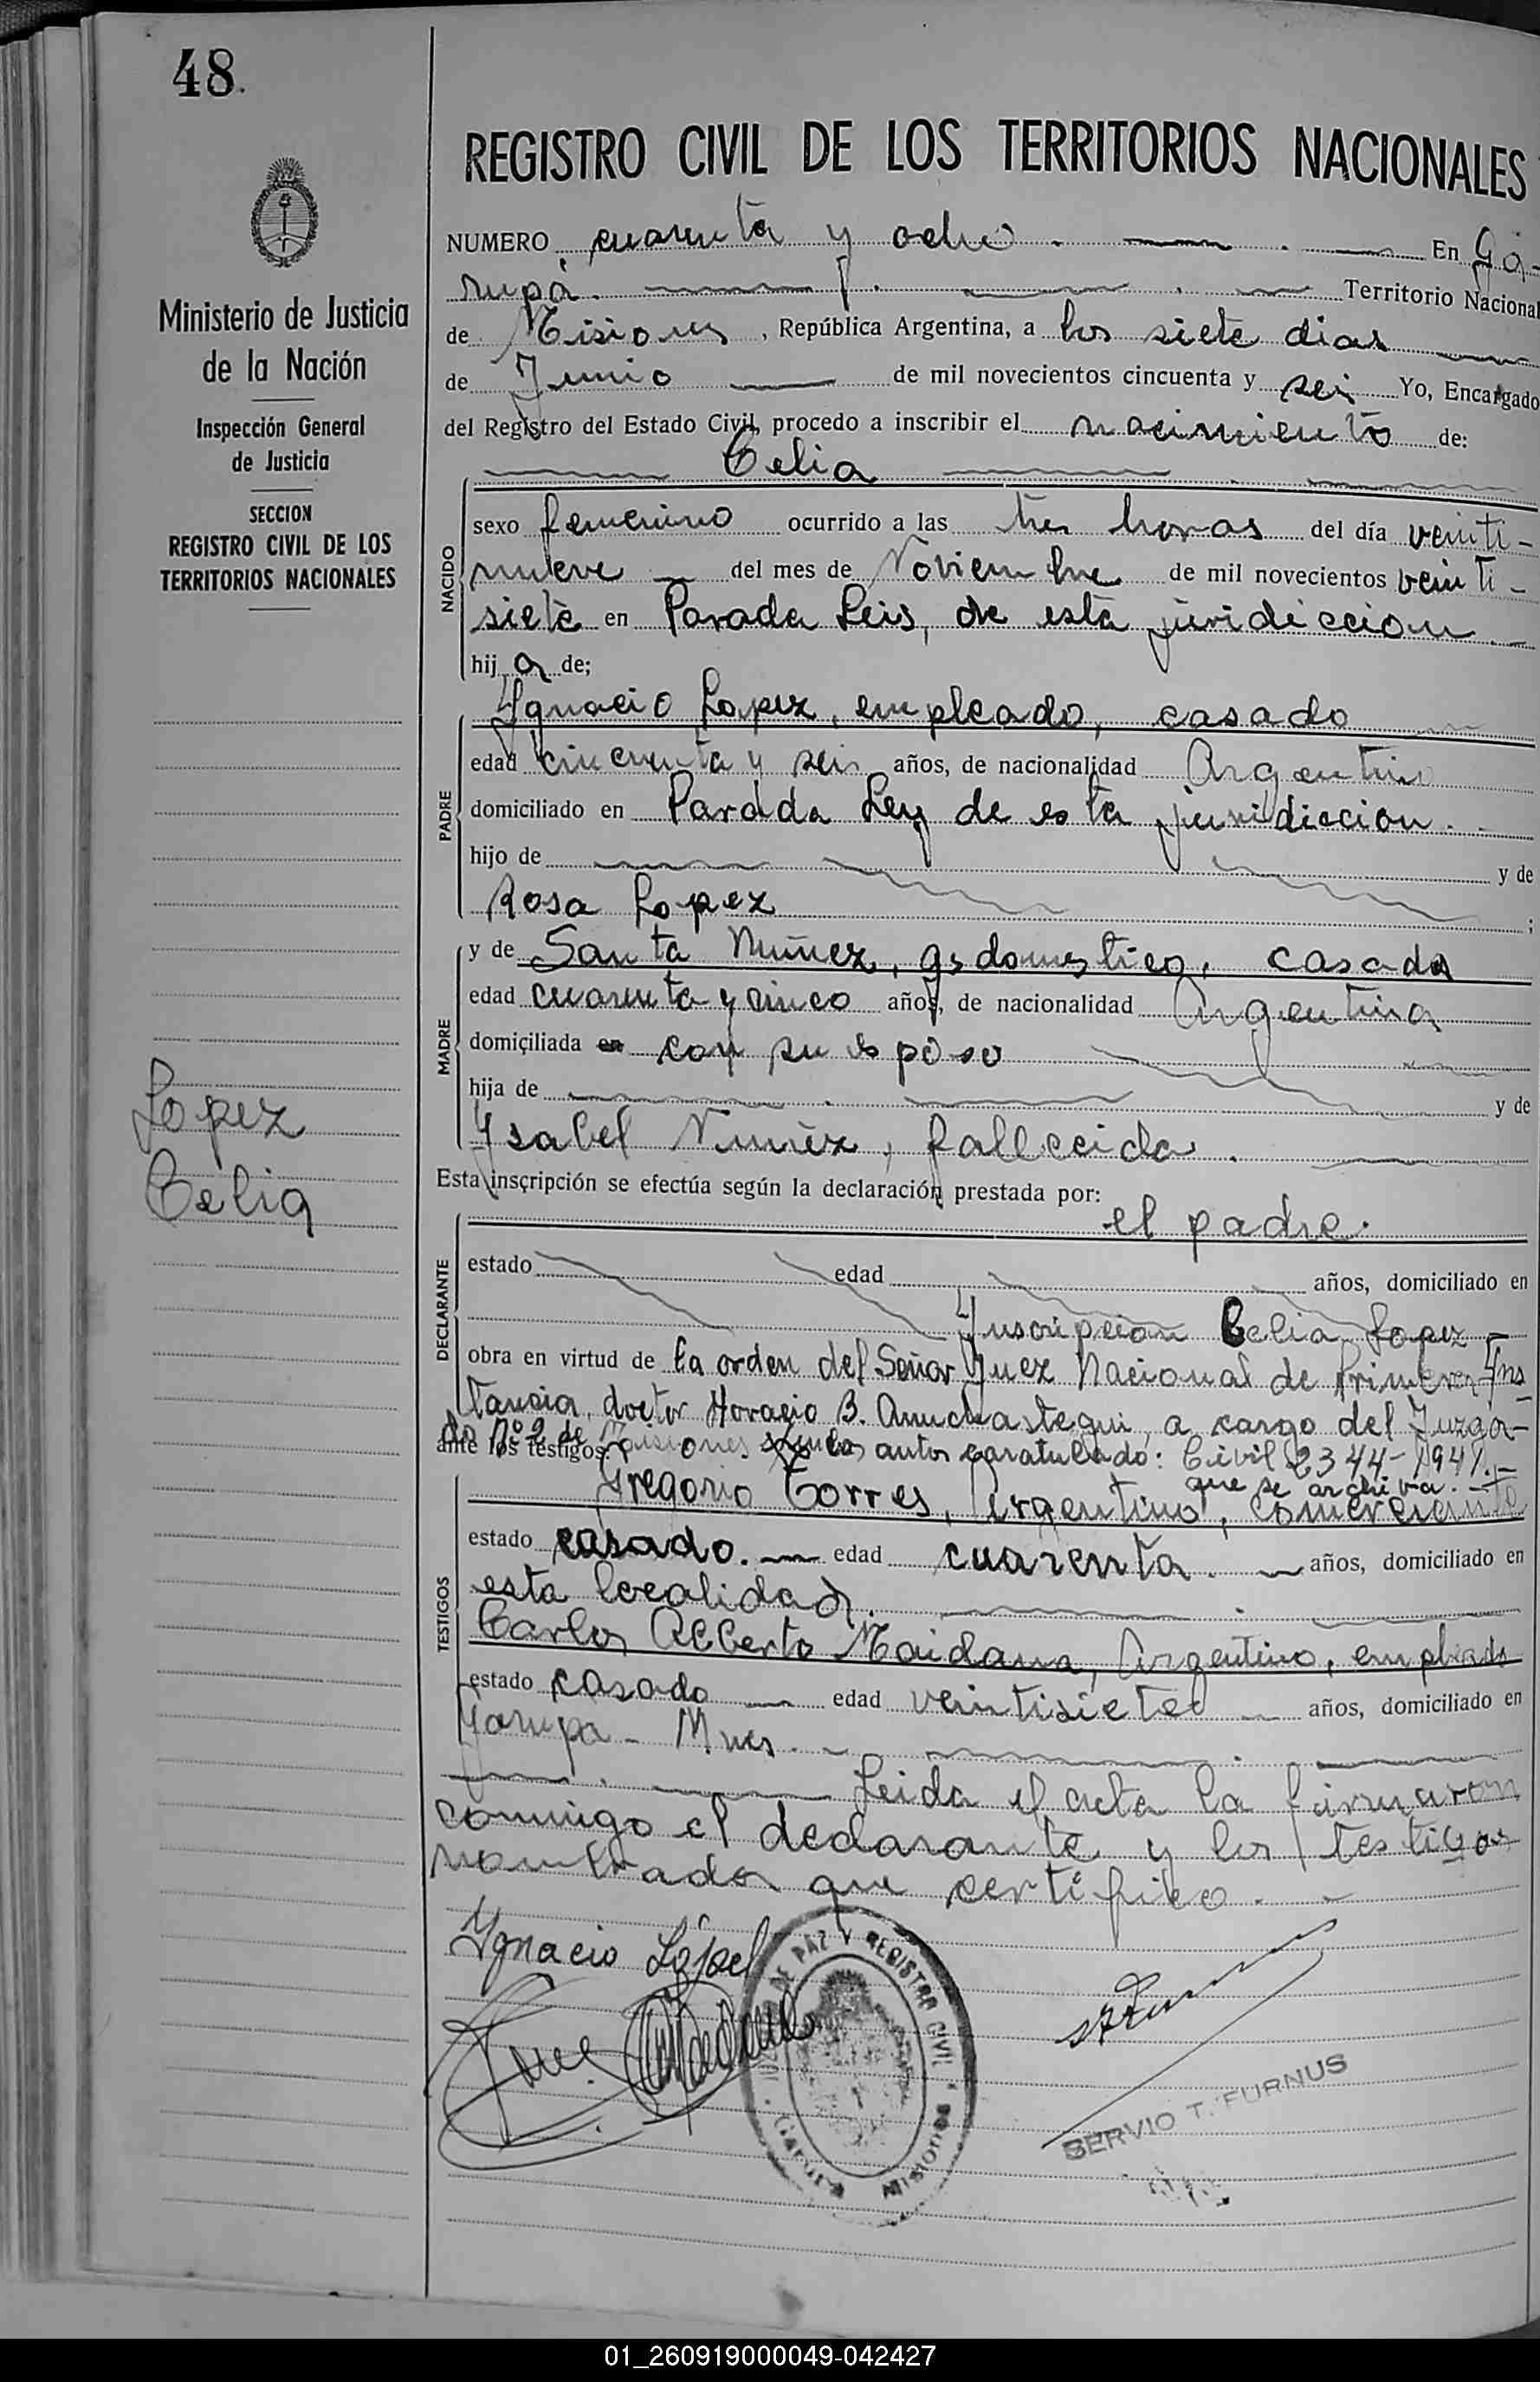 48.
REGISTRO CIVIL DE LOS TERRITORIOS NACIONALES
Ministerio de Justicia
de la Nación
Inspección General
de Justicia
SECCION
REGISTRO CIVIL DE LOS
TERRITORIOS NACIONALES
Lopez
Celia
NUMERO cuarenta y ocho. En Ga-
rupá. Territorio Nacional
de Misiones, República Argentina, a los siete dias
de Junio de mil novecientos cincuenta y seis Yo, Encargado
del Registro del Estado Civil, procedo a inscribir el nacimiento de:
Celia
NACIDO
sexo femenino ocurrido a las tres horas del día veinti-
nueve del mes de Noviembre de mil novecientos veinti-
siete en Parada Leis, de esta juridiccion.
hija de;
Ygnacio Lopez, empleado, casado
PADRE
edad cincuenta y seis años, de nacionalidad Argentino
domiciliado en Parada Ley de esta juridiccion.
hijo de y de
Rosa Lopez ;
MADRE
y de Santa Nuñez, qs domestico, casada
edad cuarenta y cinco años, de nacionalidad Argentina
domiciliada en con su esposo
hija de y de
Ysabel Nuñez, fallecida.
Esta inscripción se efectúa según la declaración prestada por:
el padre.
DECLARANTE
estado edad años, domiciliado en
Ynscripcion Celia Lopez
obra en virtud de la orden del Señor Juez Nacional de Primera Yns
tancia, doctor Horacio B. Anuchastegui, a cargo del Juzga-
do Nº 2 de Misiones autos caratulado: Civil 2344-1941.-
ante los testigos: que se archiva.
TESTIGOS
Gregorio Torres, Argentino, comerciante
estado casado. edad cuarenta. años, domiciliado en
esta localidad.
Carlos Alberto Maidana, Argentino, empleado
estado casado edad veintisiete años, domiciliado en
Garupa - Mnes.
Leida el acta la firmaron
conmigo el declarante y los testigos
nombrados que certifico.
Ygnacio Lópel
DE PAZ Y REGISTRO CIVIL
Garupá Misiones
SERVIO T. FURNUS
01_260919000049-042427